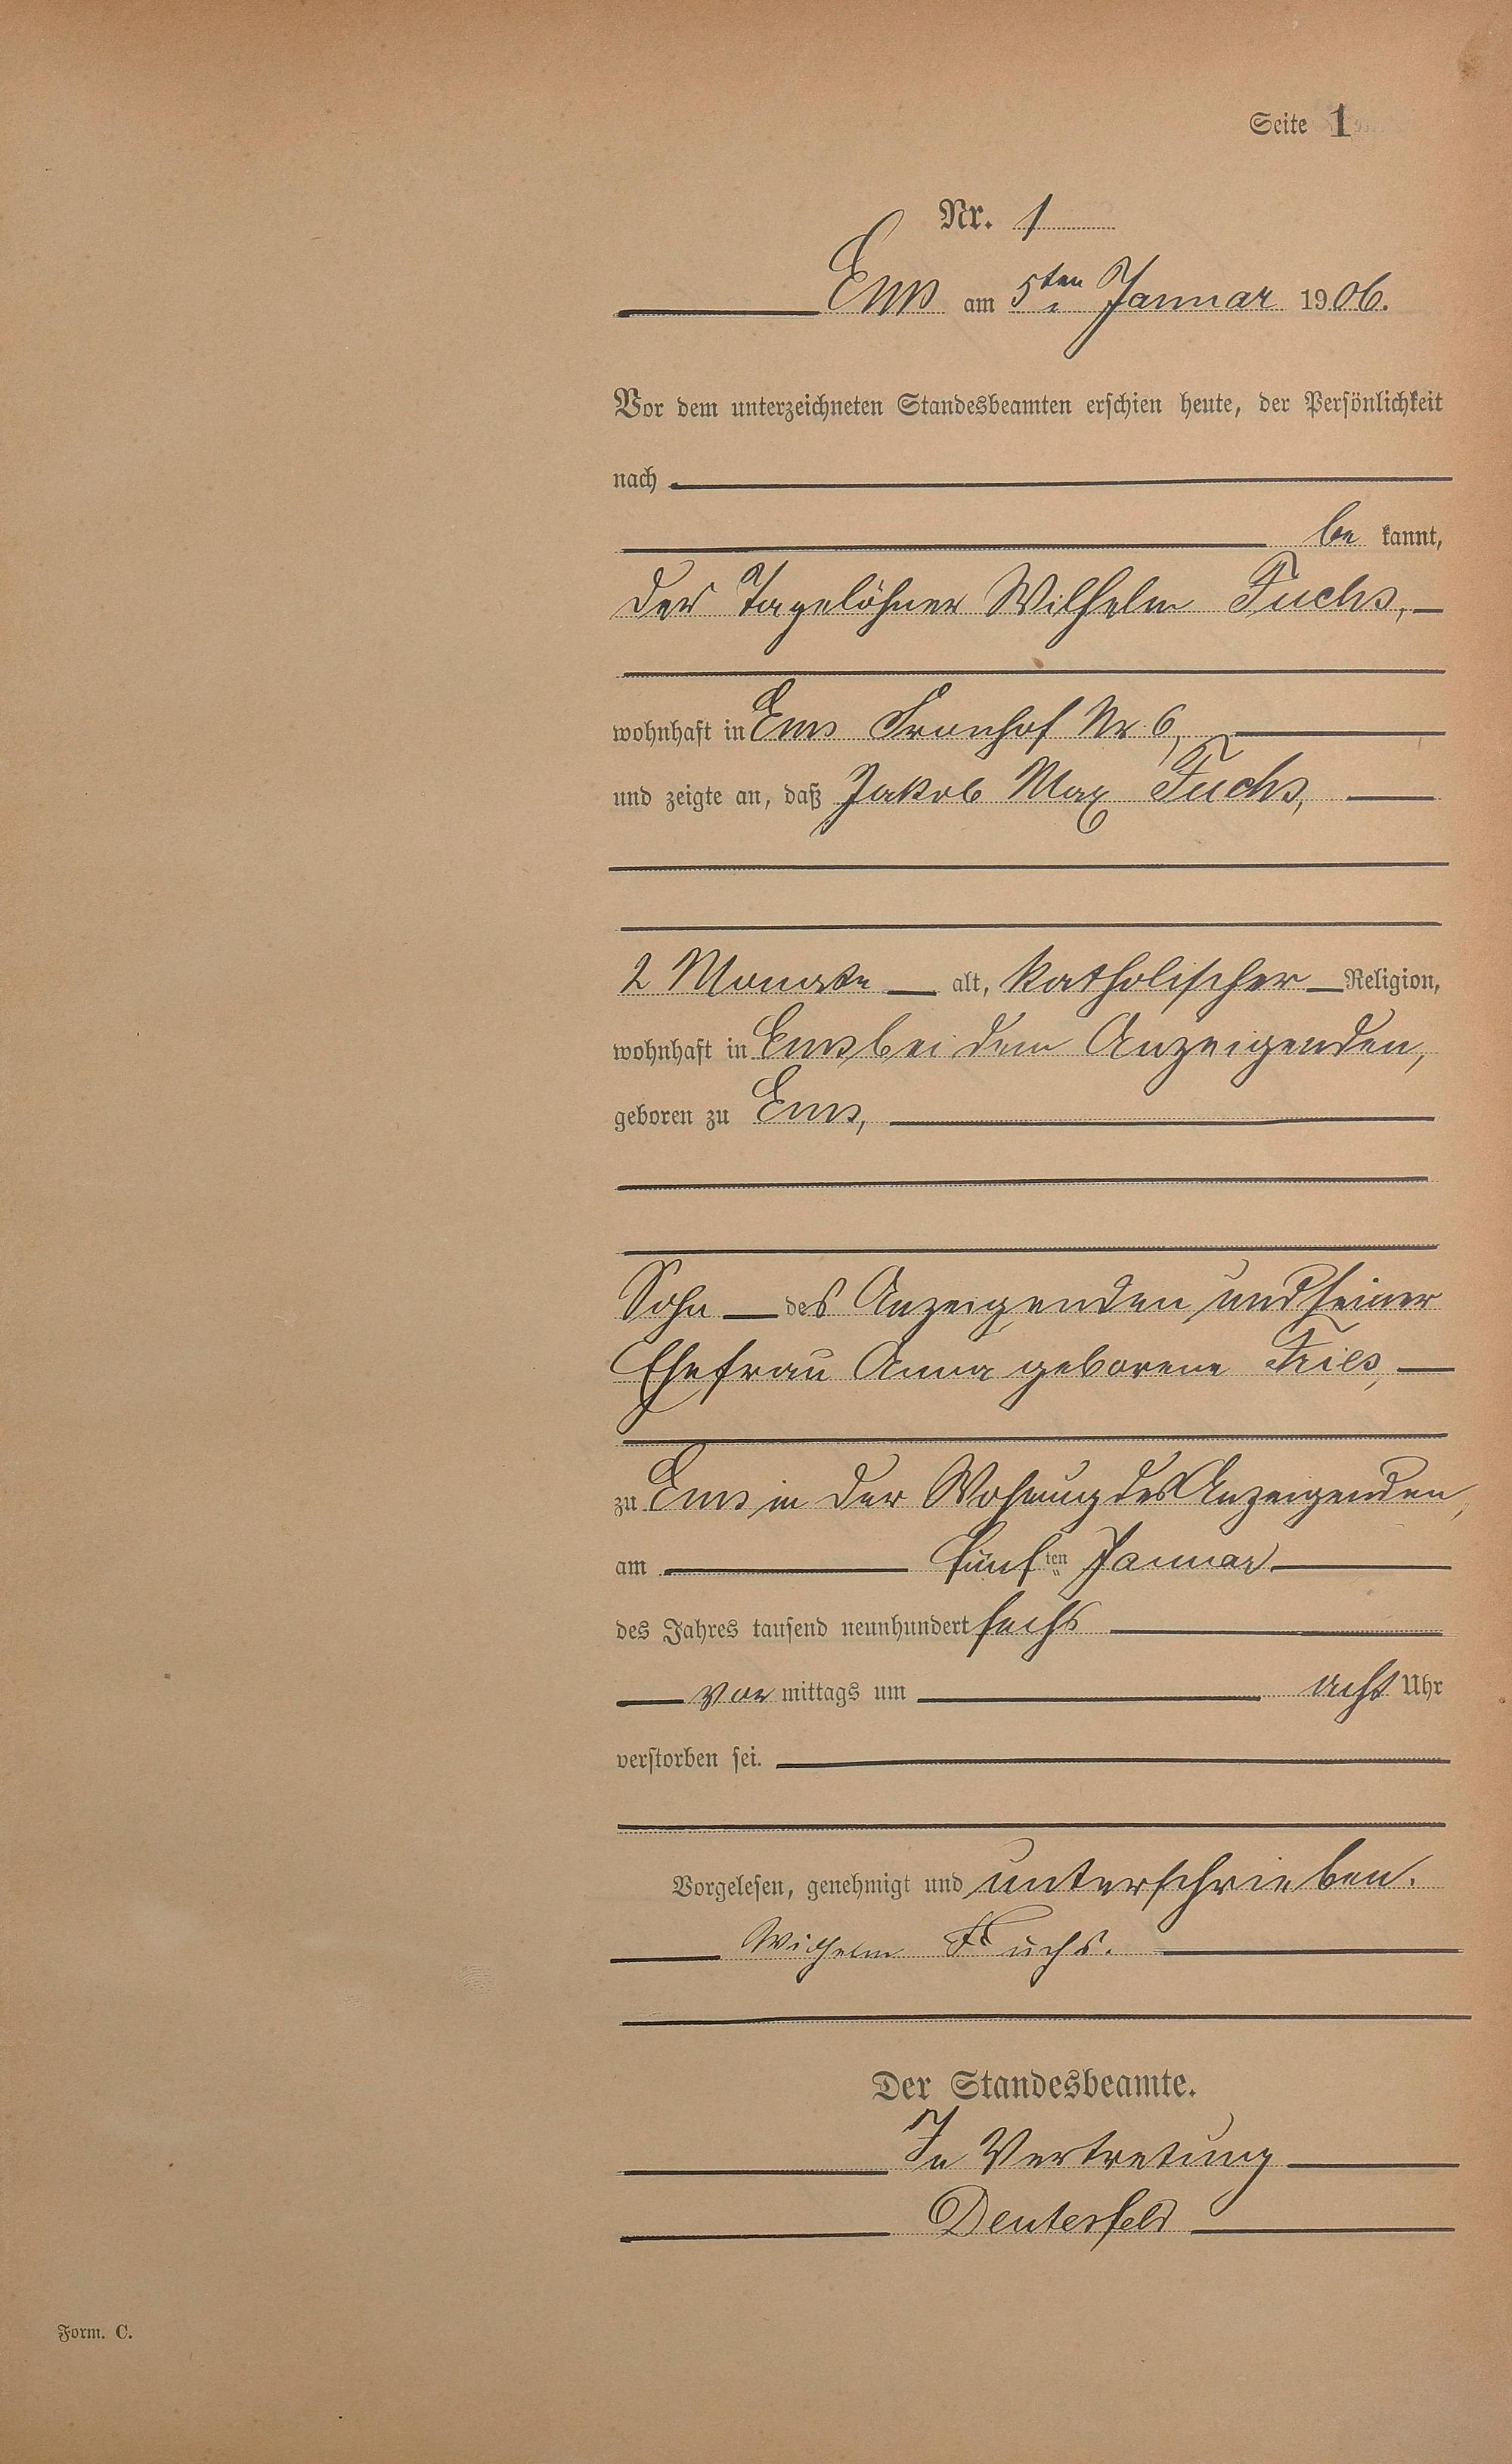 Seite 1
Nr. 1
Ems am 5ten Januar 1906.
Vor dem unterzeichneten Standesbeamten erschien heute, der Persönlichkeit
nach
be kannt,
der Tagelöhner Wilhelm Fuchs,
wohnhaft in Ems Fronhof Nr. 6,
und zeigte an, daß Jakob Max Fuchs,
2 Monate alt, katholischer Religion,
wohnhaft in Ems bei dem Anzeigenden,
geboren zu Ems,
Sohn des Anzeigenden und seiner
Ehefrau Anna geborene Fries,
zu Ems in der Wohnung des Anzeigenden,
am fünften Januar
des Jahres tausend neunhundert sechs
vor mittags um acht Uhr
verstorben sei.
Vorgelesen, genehmigt und unterschrieben.
Wilhelm Fuchs.
Der Standesbeamte.
In Vertretung
Deutesfeld
Form. C.